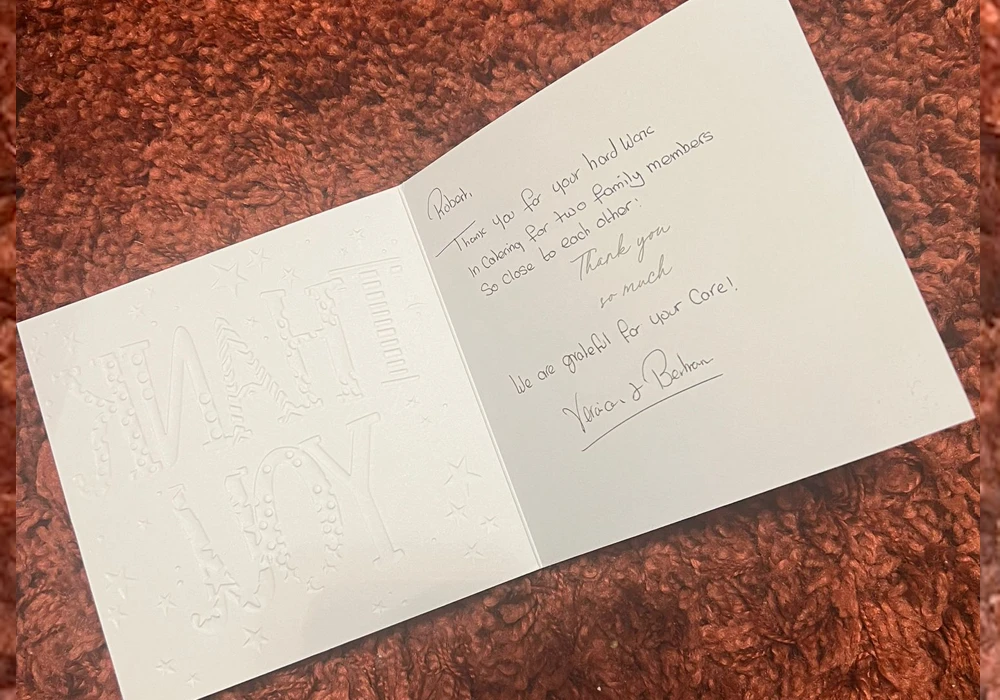 THANK
YOU
Robert,
Thank you for your hard work
in catering for two family members
So close to each other!
Thank you
so much
We are grateful for your Care!.
& Bertram